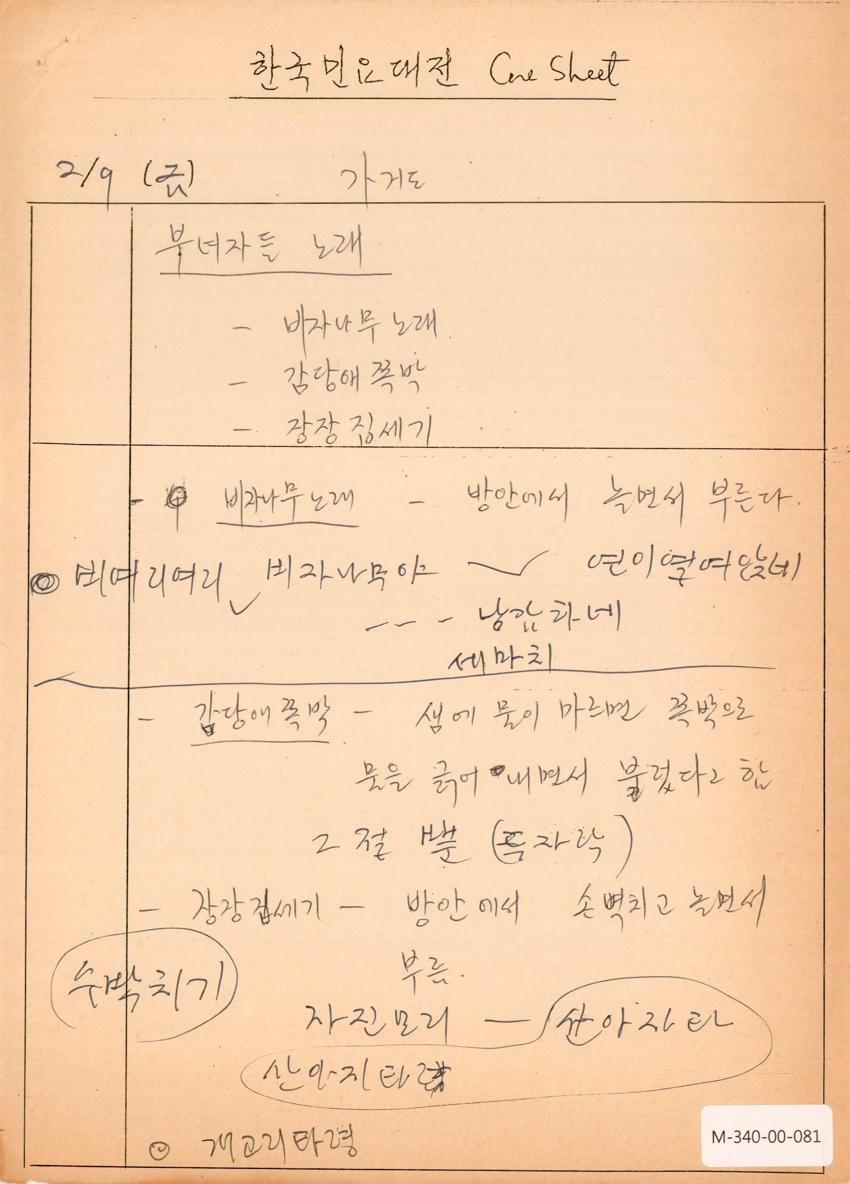 한국민요대전 Cue Sheet
2/9 (금) 가거도
부녀자들 노래
- 비자나무 노래
- 감당애 쪽박
- 장장 집세기
- 비자나무노래 - 방안에서 놀면서 부른다.
비여리여리 비자나무야 연이열여앉네
--- 낭감파네
세마치
- 감당애쪽박 - 샘에 물이 마르면 쪽박으로
물을 긁어 내면서 불렀다고 함
2절 뿐 (두자락)
- 장장집세기 - 방안에서 손벽치고 놀면서
부름.
수박치기
자진모리 — 산아지타
산아지타령
개고리타령
M-340-00-081